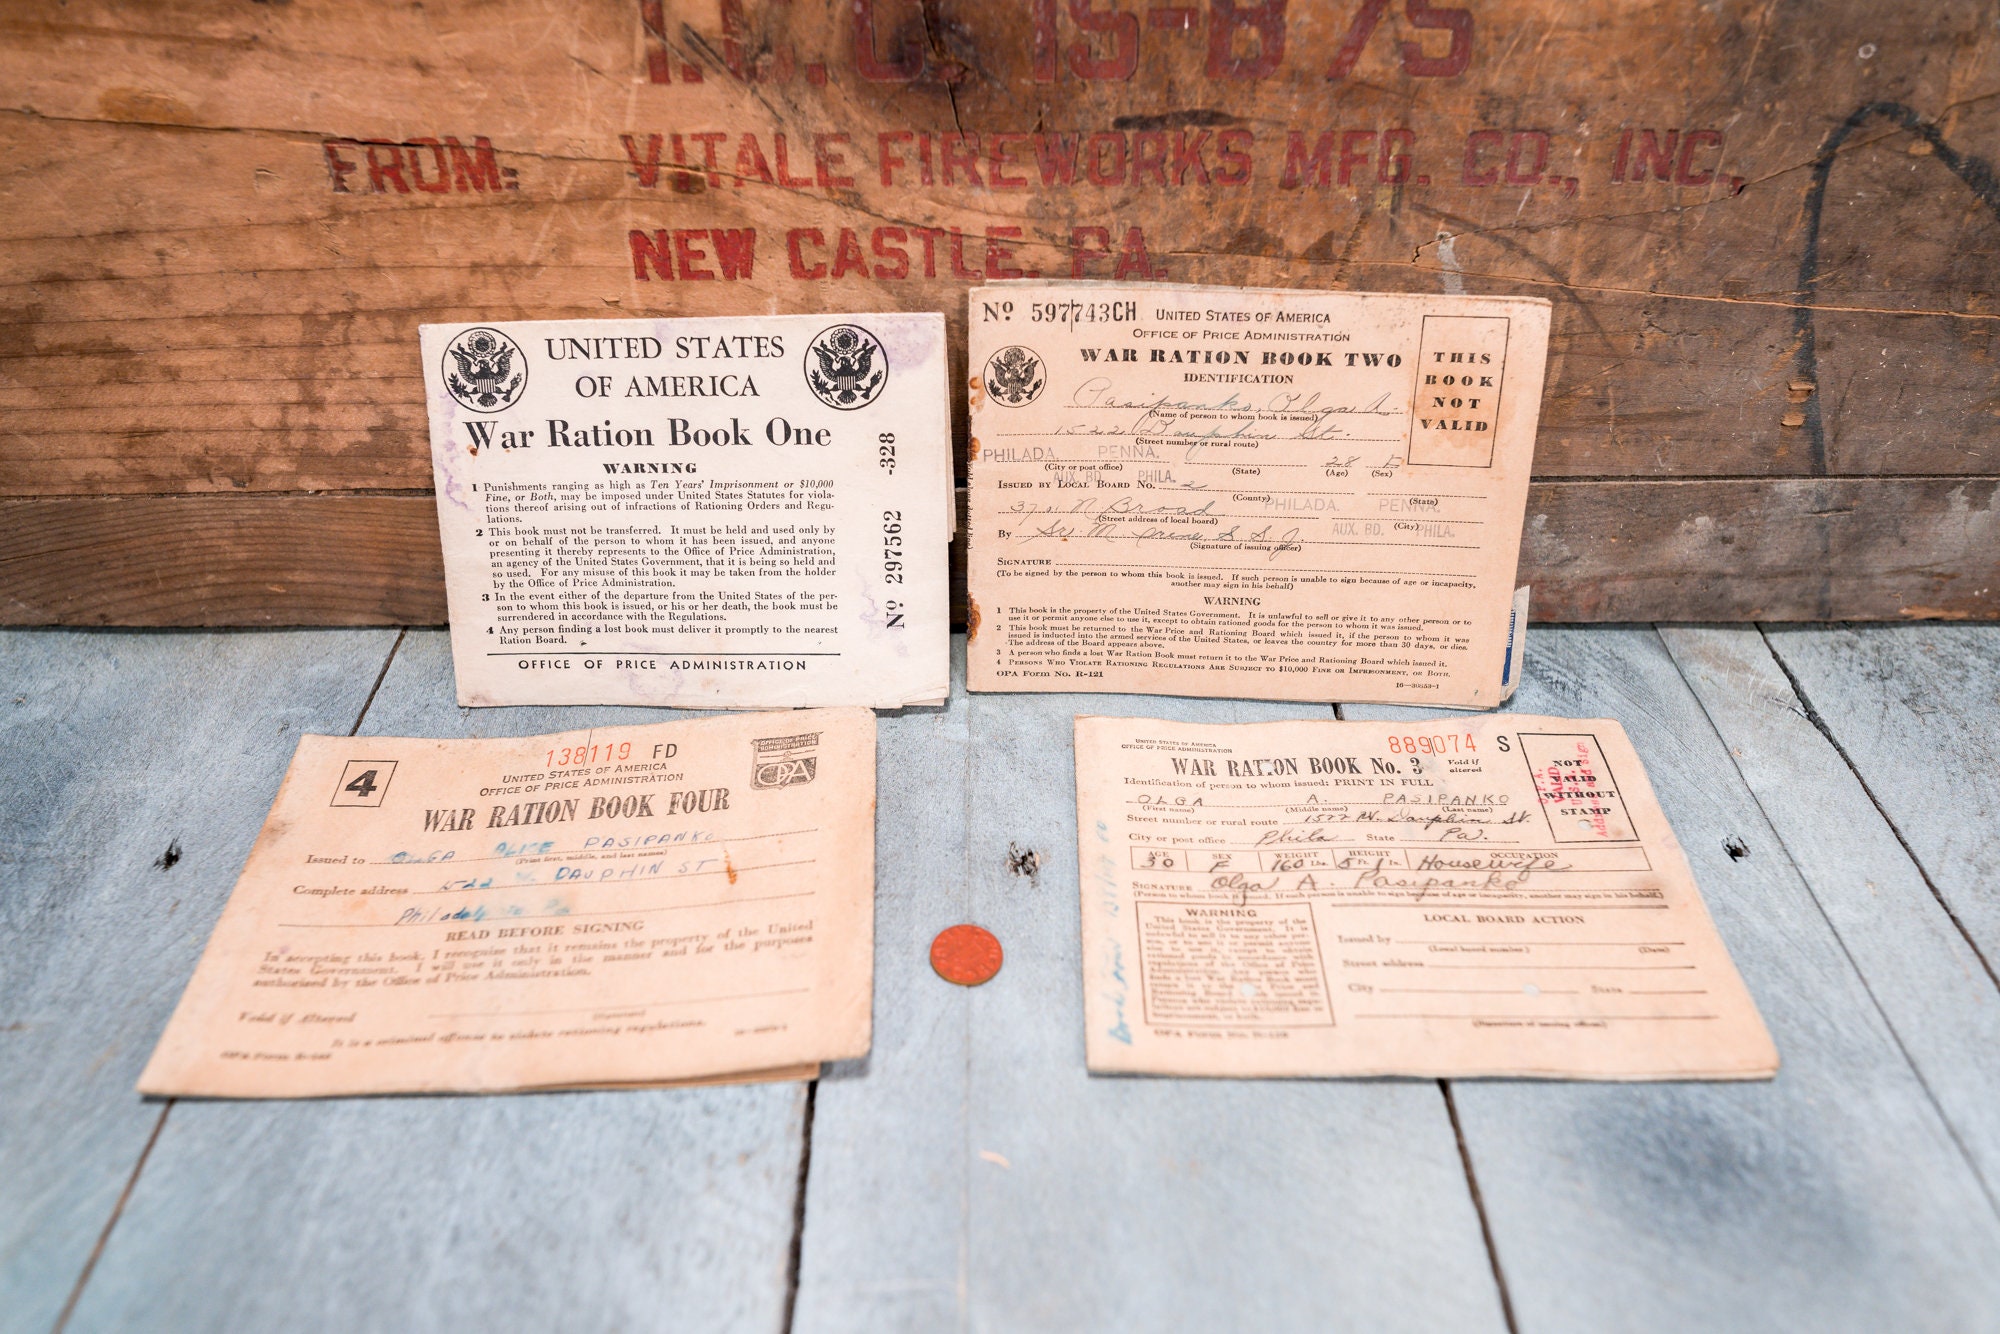 I.C.C. 15-B 75
FROM: VITALE FIREWORKS MFG. CO., INC.,
NEW CASTLE, PA.
UNITED STATES
OF AMERICA
War Ration Book One
WARNING
1 Punishments ranging as high as Ten Years' Imprisonment or $10,000
Fine, or Both, may be imposed under United States Statutes for viola-
tions thereof arising out of infractions of Rationing Orders and Regu-
lations.
2 This book must not be transferred. It must be held and used only by
or on behalf of the person to whom it has been issued, and anyone
presenting it thereby represents to the Office of Price Administration,
an agency of the United States Government, that it is being so held and
so used. For any misuse of this book it may be taken from the holder
by the Office of Price Administration.
3 In the event either of the departure from the United States of the per-
son to whom this book is issued, or his or her death, the book must be
surrendered in accordance with the Regulations.
4 Any person finding a lost book must deliver it promptly to the nearest
Ration Board.
OFFICE OF PRICE ADMINISTRATION
Nº 297562 -328
Nº 597743CH
UNITED STATES OF AMERICA
OFFICE OF PRICE ADMINISTRATION
WAR RATION BOOK TWO
IDENTIFICATION
THIS
BOOK
NOT
VALID
Pasipanko, Olga A.
(Name of person to whom book is issued)
1522 Dauphin St.
(Street number or rural route)
PHILADA. PENNA. 28 F
(City or post office) (State) (Age) (Sex)
AUX. BD. PHILA.
ISSUED BY LOCAL BOARD NO. 2
(County) PHILADA. PENNA. (State)
3701 N Broad
(Street address of local board) (City)
AUX. BD. PHILA.
By Sr M S. S. J.
(Signature of issuing officer)
SIGNATURE
(To be signed by the person to whom this book is issued. If such person is unable to sign because of age or incapacity,
another may sign in his behalf)
WARNING
1 This book is the property of the United States Government. It is unlawful to sell or give it to any other person or to
use it or permit anyone else to use it, except to obtain rationed goods for the person to whom it was issued.
2 This book must be returned to the War Price and Rationing Board which issued it, if the person to whom it was
issued is inducted into the armed services of the United States, or leaves the country for more than 30 days, or dies.
The address of the Board appears above.
3 A person who finds a lost War Ration Book must return it to the War Price and Rationing Board which issued it.
4 PERSONS WHO VIOLATE RATIONING REGULATIONS ARE SUBJECT TO $10,000 FINE OR IMPRISONMENT, OR BOTH.
OPA FORM NO. R-121
16—30853-1
4
138119 FD
UNITED STATES OF AMERICA
OFFICE OF PRICE ADMINISTRATION
OFFICE OF PRICE
ADMINISTRATION
OPA
WAR RATION BOOK FOUR
Issued to OLGA ALICE PASIPANKO
(Print first, middle, and last names)
Complete address 1522 W. DAUPHIN ST
Philadelphia Pa
READ BEFORE SIGNING
In accepting this book, I recognize that it remains the property of the United
States Government. I will use it only in the manner and for the purposes
authorized by the Office of Price Administration.
Void if Altered
(Signature)
It is a criminal offense to violate rationing regulations.
OPA Form R-145
UNITED STATES OF AMERICA
OFFICE OF PRICE ADMINISTRATION
889074 S
WAR RATION BOOK No. 3
Void if
altered
NOT
VALID
WITHOUT
STAMP
Identification of person to whom issued: PRINT IN FULL
OLGA A. PASIPANKO
(First name) (Middle name) (Last name)
Street number or rural route 1522 W. Dauphin St.
City or post office Phila State Pa.
AGE SEX WEIGHT HEIGHT OCCUPATION
30 F 160 Lbs. 5 Ft. 1 In. Housewife
SIGNATURE Olga A. Pasipanko
(Person to whom book is issued. If such person is unable to sign because of age or incapacity, another may sign in his behalf)
WARNING
This book is the property of the
United States Government. It is
unlawful to sell it to any other per-
son, or to use it or permit anyone
else to use it, except to obtain
rationed goods in accordance with
regulations of the Office of Price
Administration. Any person who
finds a lost War Ration Book must
return it to the War Price and
Rationing Board which issued it.
Persons who violate rationing regu-
lations are subject to $10,000 fine or
imprisonment, or both.
LOCAL BOARD ACTION
Issued by
(Local board number) (Date)
Street address
City State
(Signature of issuing officer)
OPA Form No. R-129